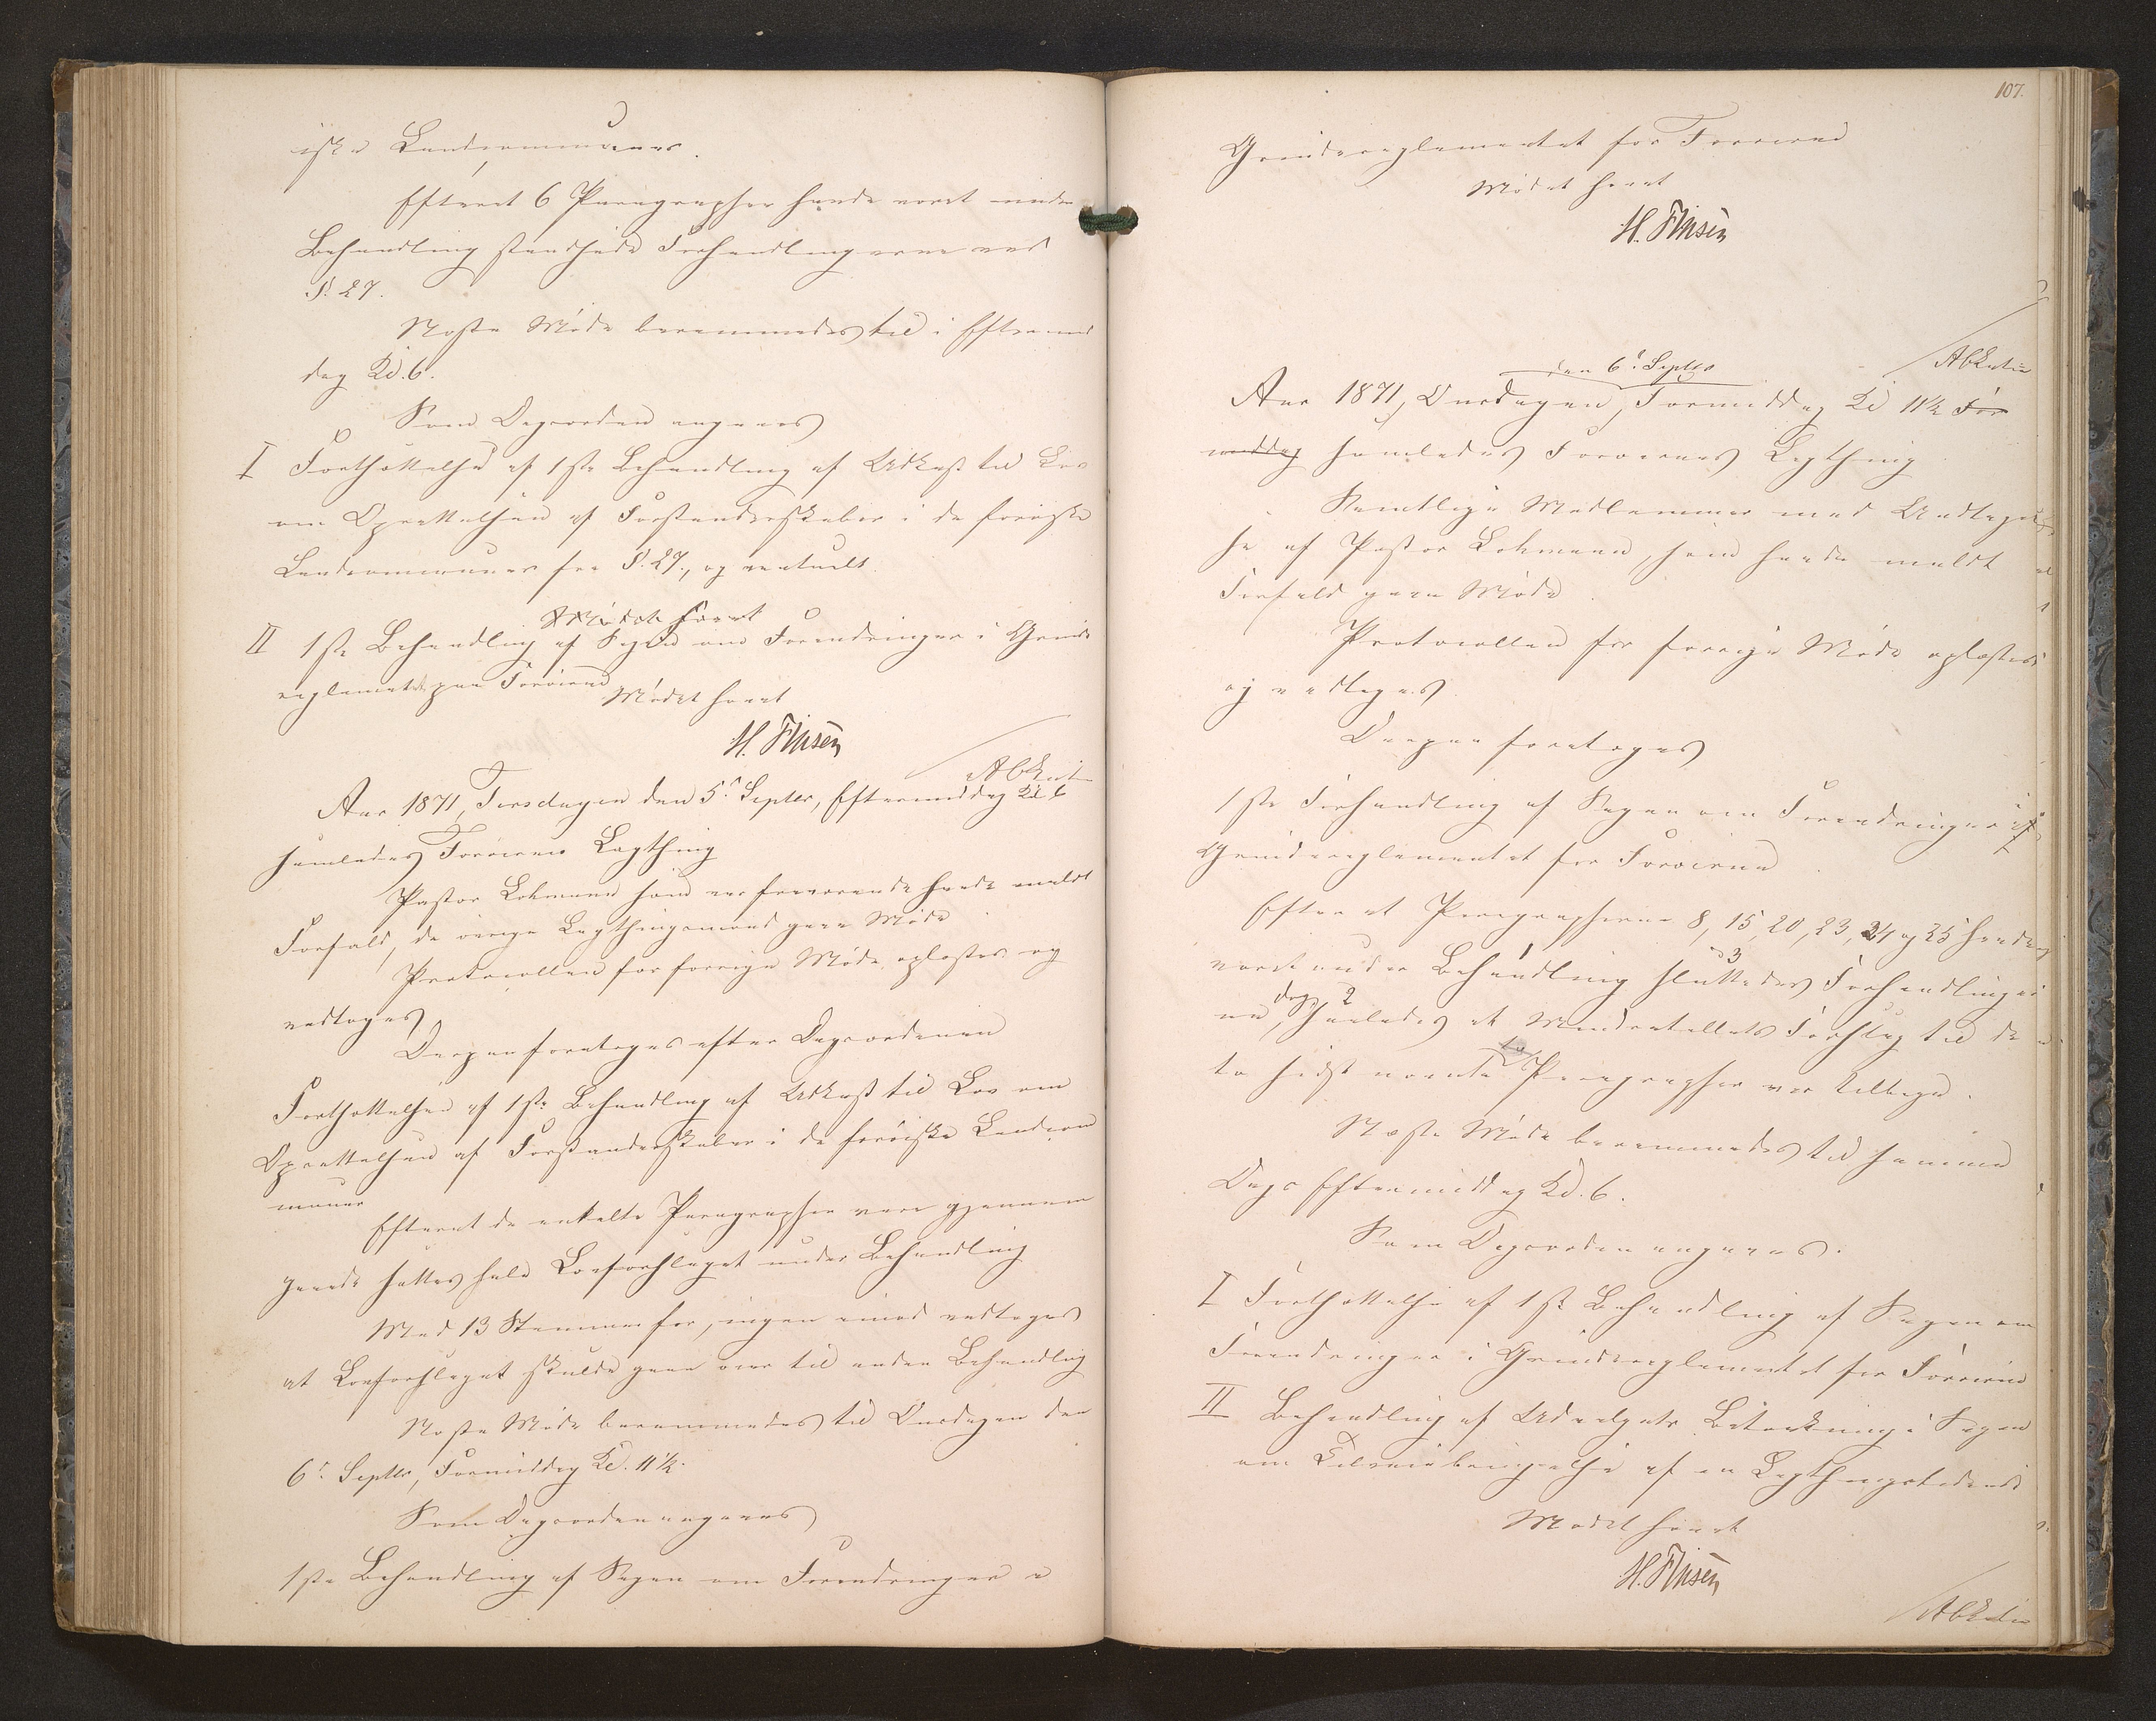 iske Landcommuner.
Efterat 6 Paragrapher havde været under
Behandling standsede Forhandlingerne ved
§. 27.
Næste Møde berammedes til i Eftermid
dag Kl. 6.
Som Dagsorden angaves
I Fortsættelse af 1ste Behandling af Udkast til Lov
om Oprettelsen af Forstanderskaber i de færøiske
Landcommuner fra §. 27, og eventuelt.
Mødet hævet
II 1ste Behandling af Sagen om Forandringer i Grinde
reglementet paa Færøerne
Mødet hævet
H. Finsen
Aar 1871, Tirsdagen den 5te Septbr, Eftermiddag Kl 6
samledes Færøernes Lagthing
Pastor Lohmann som var fraværende havde meldt
Forfald, de øvrige Lagthingsmænd gave Møde
Protocollen for forrige Møde oplæstes og
vedtoges.
Derpaa foretoges efter Dagsordenen
Fortsættelsen af 1ste Behandling af Udkast til Lov om
Oprettelsen af Forstanderskaber i de færøiske Landcom
muner
Efterat de enkelte Paragrapher vare gjennem
gaaede sattes hele Lovforslaget under Behandling
Med 13 Stemmer for, ingen imod vedtoges
at Lovforslaget skulde gaae over til anden Behandling
Næste Møde berammedes til Onsdagen den
6te Septbr, Formiddag Kl. 11½.
Som Dagsorden angaves
1ste Behandling af Sagen om Forandringer i
107.
Grindereglementet for Færøerne
Mødet hævet
H. Finsen
den 6te Septbr
Aar 1871, Onsdagen, Formiddag Kl 11½ For
middag samledes Færøernes Lagthing
Samtlige Medlemmer med Undtagel
se af Pastor Lohmann, som havde meldt
Forfald gave Møde.
Protocollen for forrige Møde oplæstes
og vedtoges.
Derpaa foretoges
1ste Forhandling af Sagen om Forandringer i
Grindereglementet for Færøerne
Efter at Paragrapherne 8, 15, 20, 23, 24 og 25 havde
været under Behandling sluttedes Forhandlinger
ne, dog saaledes at Mindretallets Forslag til de
to sidst nævnte Paragrapher var tilbage.
Næste Møde berammedes til samme
Dags Eftermiddag Kl. 6.
Som Dagsorden angaves.
I Fortsættelse af 1ste Behandling af Sagen om
Forandringer i Grindereglementet for Færøerne
II Behandling af Udvalgets Betænkning i Sagen
om Tilveiebringelse af en Lagthingstidende
Mødet hævet
H. Finsen